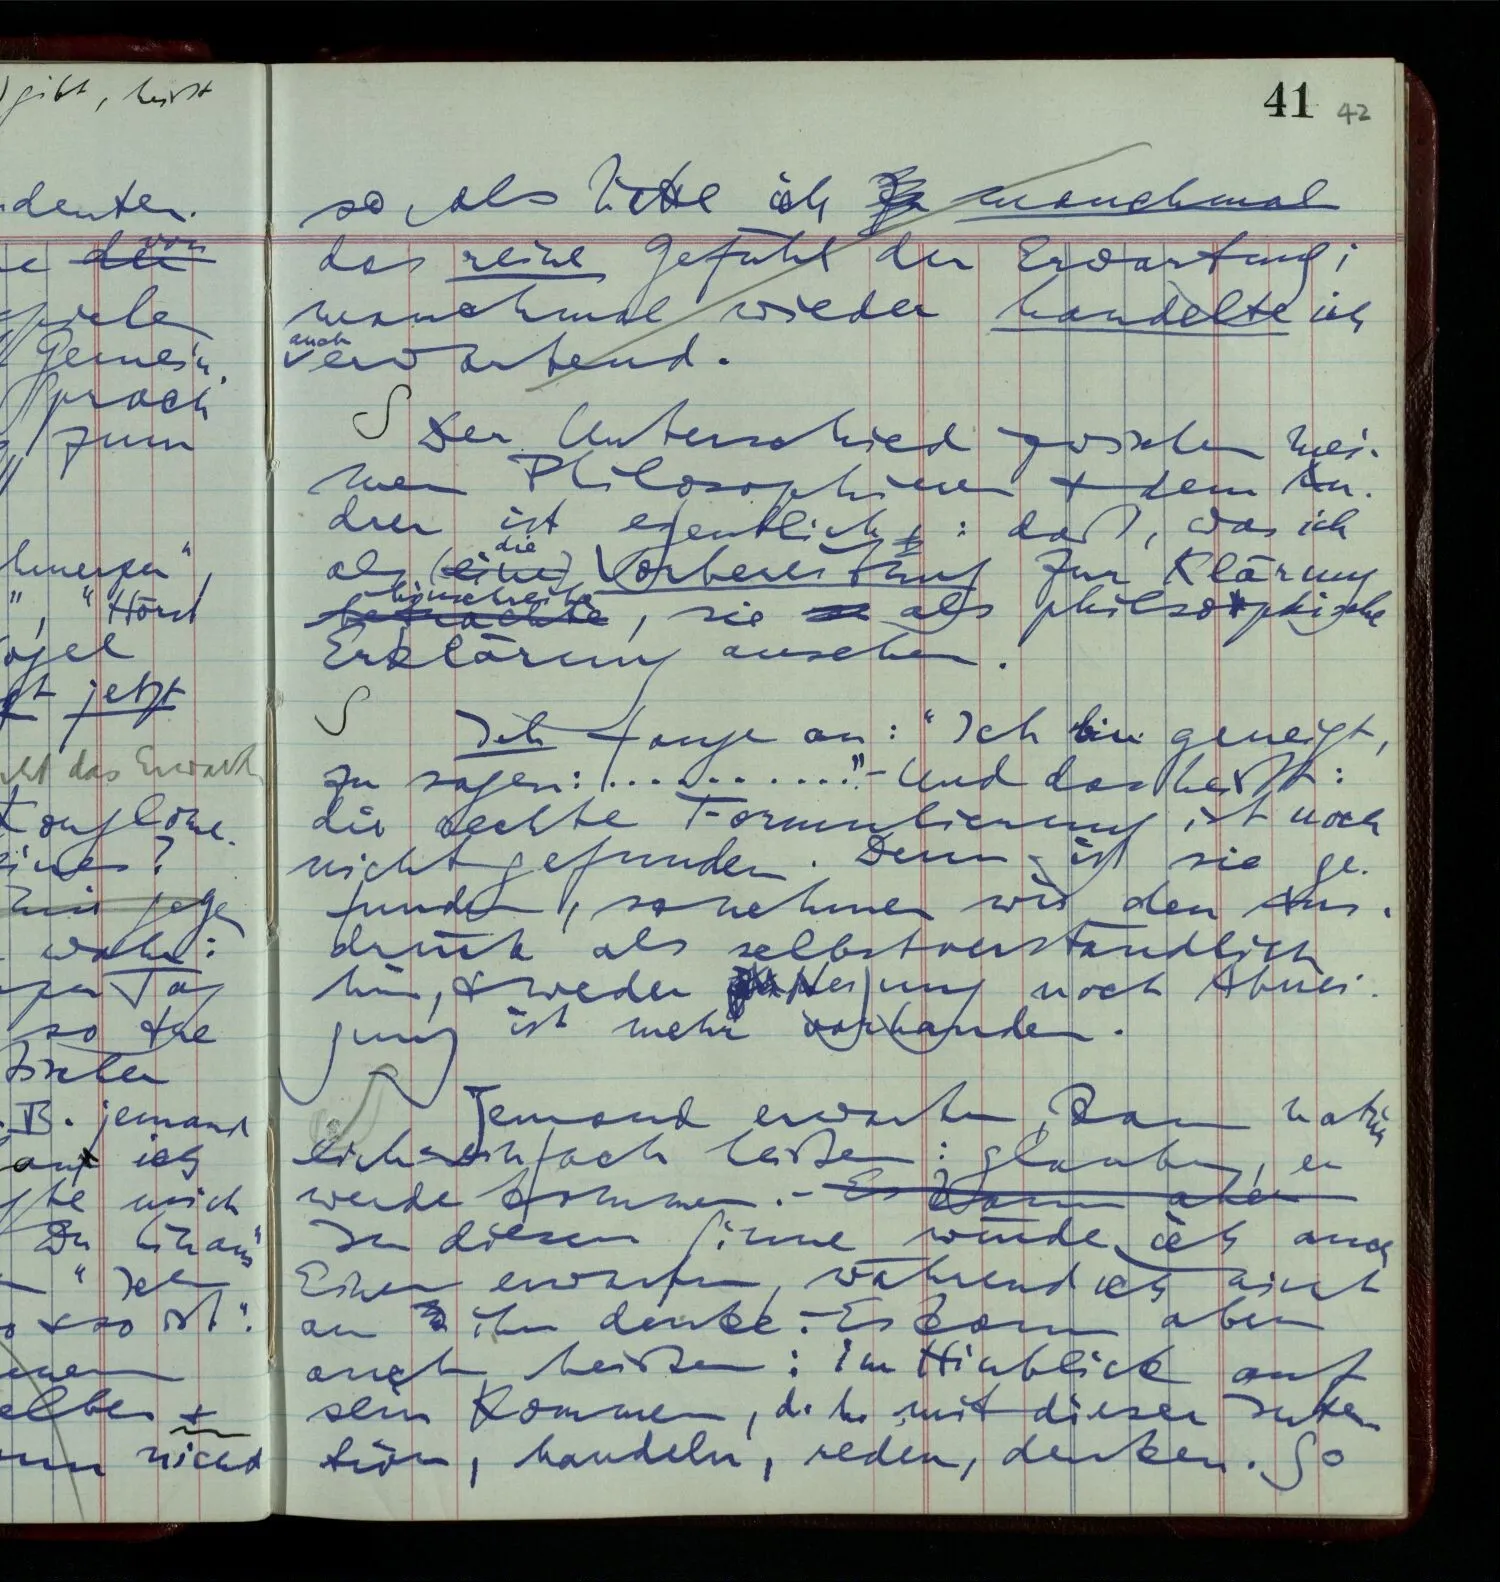 ) gibt, heißt
deuten.
von
die
spiele
Gemein
Sprach
/ zum
",
", "Hörst
jetzt
das Erwart
Konglome-
eines?
wahr:
Tag
so
z.B. jemand
ich
mich
Du
"Ich
& so ist".
+
nicht
41 42
so, als hätte ich manchmal
das reine Gefühl der Erwartung;
manchmal wieder handelte ich
auch
erwartend.
S Der Unterschied zwischen mei-
nem Philosophieren & dem An-
drer ist eigentlich: daß, was ich
die
als (eine) Vorbereitung zur Klärung
hinschreibe
betrachte, sie als philosophische
Erklärung ansehen.
S Ich fange an: "Ich bin geneigt,
zu sagen: ..........." – Und das heißt:
die rechte Formulierung ist noch
nicht gefunden. Denn ist sie ge-
funden, so nehmen wir den Aus-
druck als selbstverständlich
hin, & weder Neigung noch Abnei-
gung ist mehr vorhanden.
S Jemand erwarten, kann natür
lich einfach heißen: glauben, er
werde kommen. – Es kann aber
In diesem Sinne würde ich auch
Einen erwarten, während ich nicht
an ihn denke. – Es kann aber
auch heißen: im Hinblick auf
sein Kommen, d.h. mit dieser Inten
tion, handeln, reden, denken. So